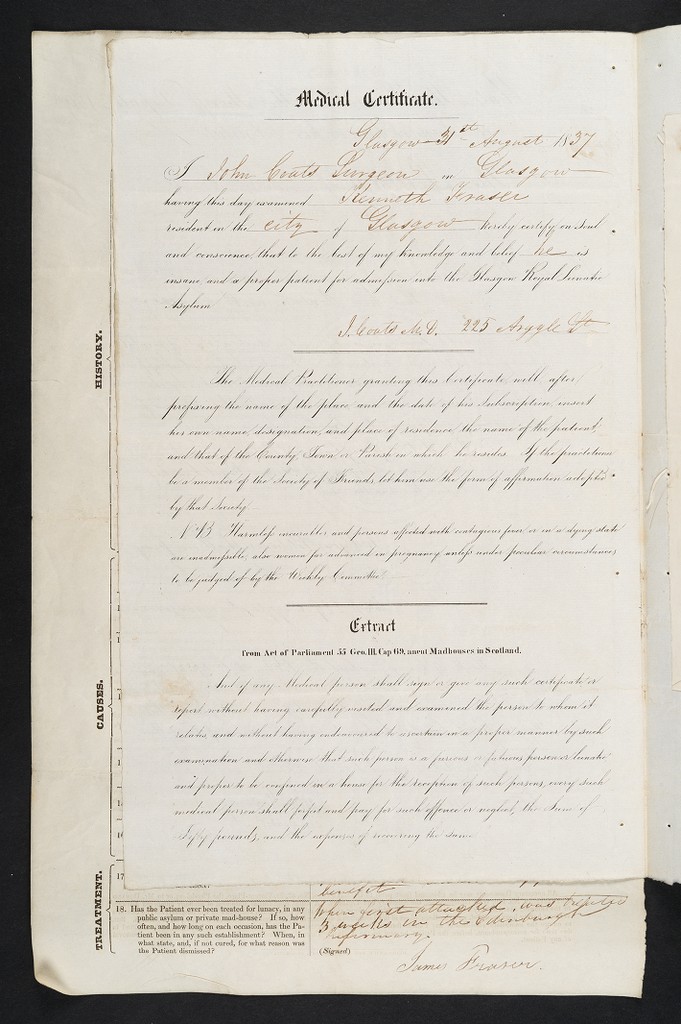 Medical Certificate.
Glasgow 31st August 1837
I John Coats Surgeon in Glasgow
having this day examined Kenneth Fraser
resident in the city of Glasgow hereby certify on soul
and conscience, that to the best of my knowledge and belief he is
insane, and a proper patient for admission into the Glasgow Royal Lunatic
Asylum
J. Coats M.D. 225 Argyle St
The Medical Practitioner granting this Certificate, will, after
prefixing the name of the place and the date of his Subscription, insert
his own name, designation, and place of residence, the name of the patient,
and that of the County, Town or Parish in which he resides. If the practitioner
be a member of the Society of Friends, let him use the form of affirmation adopted
by that Society.
N.B. Harmless incurables and persons affected with contagious fever or in a dying state
are inadmissible, also women far advanced in pregnancy, unless under peculiar circumstances
to be judged of by the Weekly Committee
Extract
from Act of Parliament 55 Geo. III. Cap 69, anent Madhouses in Scotland.
And if any Medical person shall sign or give any such certificate or
report without having carefully visited and examined the person to whom it
relates and without having endeavoured to ascertain in a proper manner by such
examination and otherwise that such person is a furious or fatuous person or lunatic
and proper to be confined in a house for the reception of such persons, every such
medical person shall forfeit and pay for such offence or neglect, the Sum of
Fifty pounds, and the expenses of recovering the same
HISTORY.
CAUSES.
TREATMENT.
17
benefit
18. Has the Patient ever been treated for lunacy, in any
public asylum or private mad-house? If so, how
often, and how long on each occasion, has the Pa-
tient been in any such establishment? When, in
what state, and, if not cured, for what reason was
the Patient dismissed?
When first attacked, was treated
3 weeks in the Edinburgh
Infirmary.
(Signed)
James Fraser.